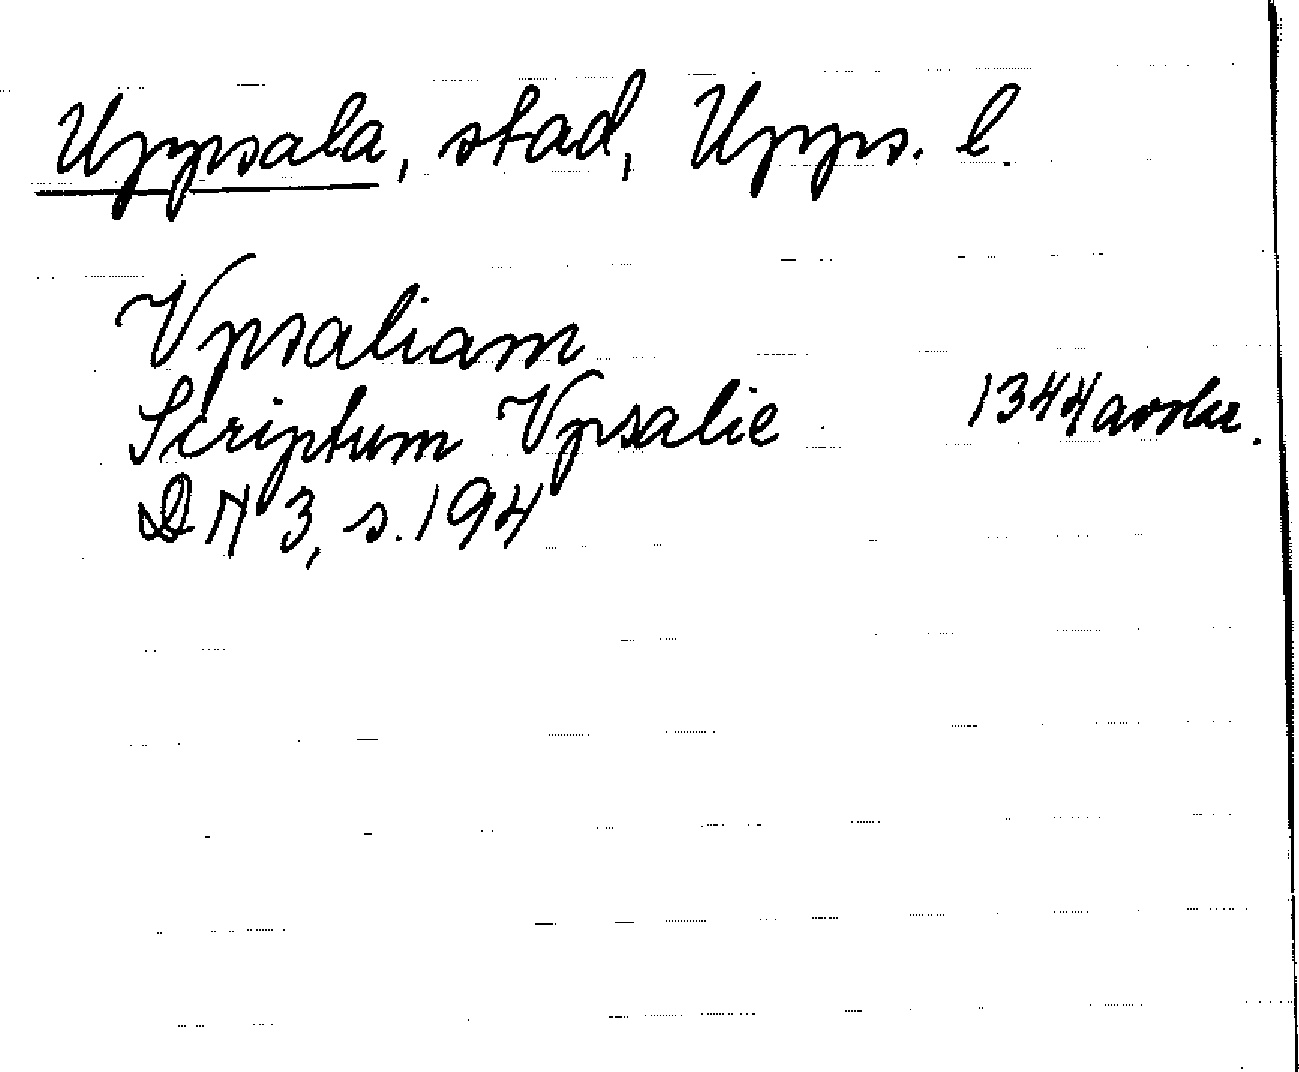 Uppsala, stad, Upps. l.
Vpsaliam
Scriptum Vpsalie 1344 avskr.
DN 3, s. 194